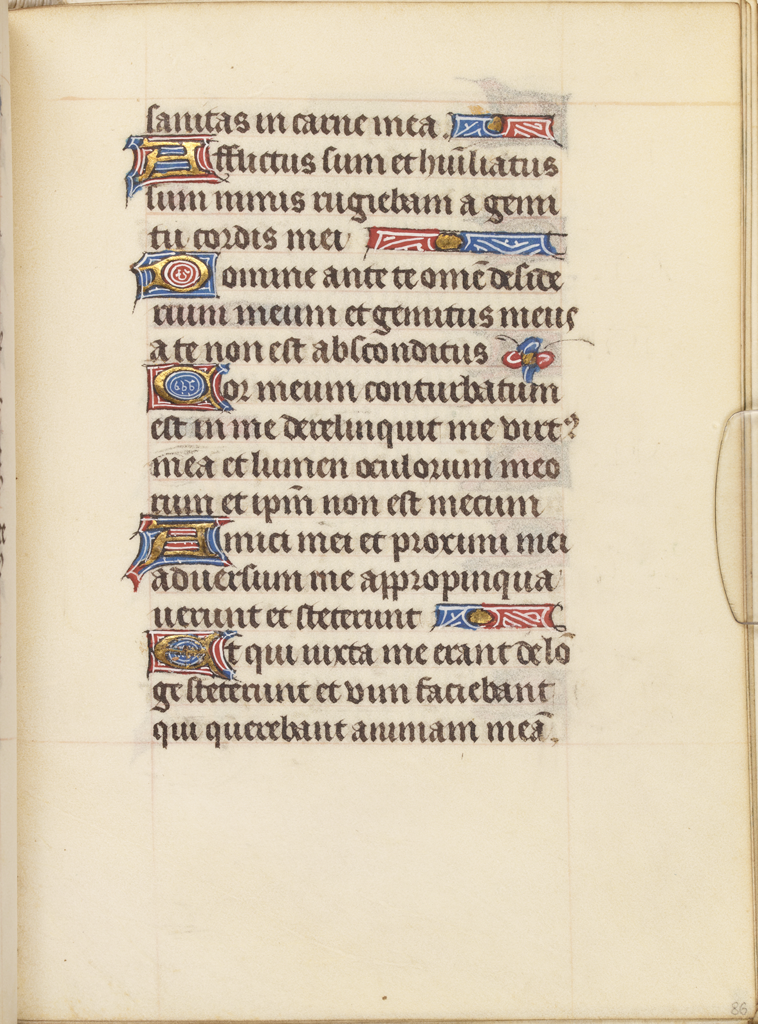 sanitas in carne mea.
Afflictus sum et hūiliatus
sum nimis rugiebam a gemi
tu cordis mei
Domine ante te omē deside
rium meum et gemitus meus
a te non est absconditus
Cor meum conturbatum
est in me dereliquit me virt᷒
mea et lumen oculorum meo
rum et ipm̄ non est mecum
Amici mei et proximi mei
adversum me appropinqua
verunt et steterunt
Et qui iuxta me erant de lō
ge steterunt et vim faciebant
qui querebant animam meā.
86